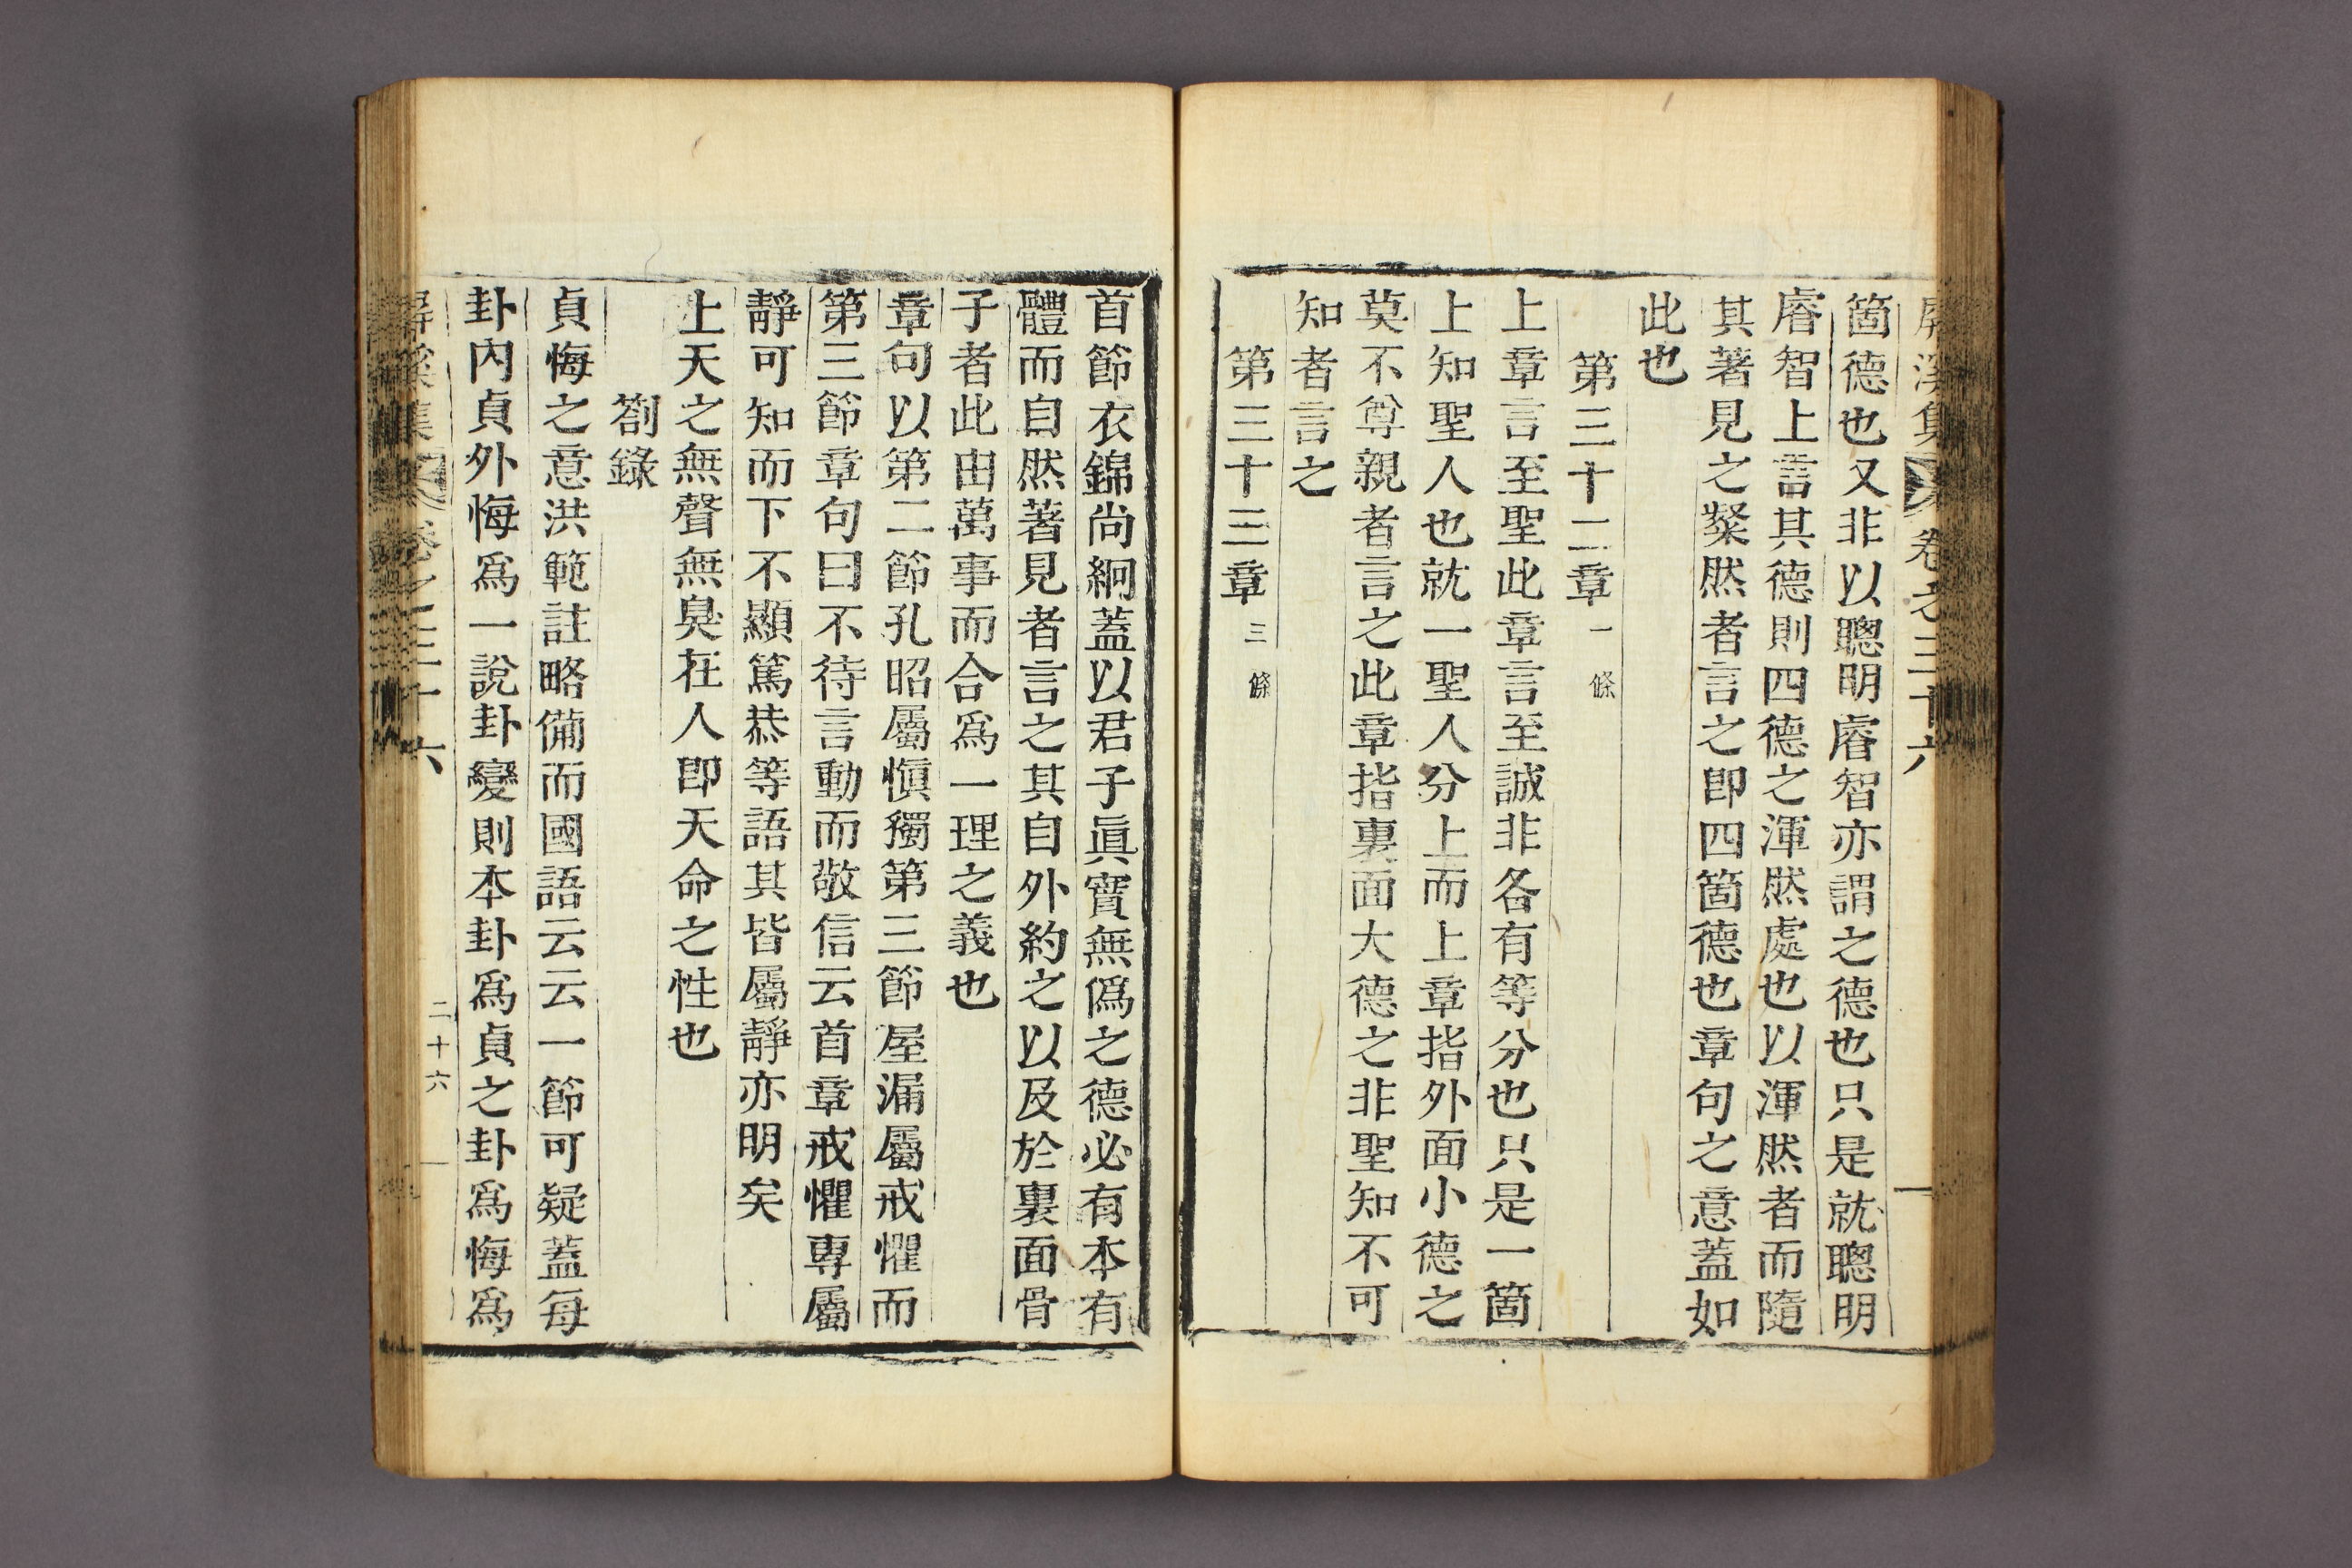 屛溪集 卷之三十六
箇德也又非以聰明睿智亦謂之德也只是就聰明
睿智上言其德則四德之渾然處也以渾然者而隨
其著見之粲然者言之卽四箇德也章句之意蓋如
此也
第三十二章 一條
上章言至聖此章言至誠非各有等分也只是一箇
上知聖人也就一聖人分上而上章指外面小德之
莫不尊親者言之此章指裏面大德之非聖知不可
知者言之
第三十三章 三條
首節衣錦尙絅蓋以君子眞實無僞之德必有本有
體而自然著見者言之其自外約之以及於裏面骨
子者此由萬事而合爲一理之義也
章句以第二節孔昭屬愼獨第三節屋漏屬戒懼而
第三節章句曰不待言動而敬信云首章戒懼專屬
靜可知而下不顯篤恭等語其皆屬靜亦明矣
上天之無聲無臭在人卽天命之性也
箚錄
貞悔之意洪範註略備而國語云云一節可疑蓋每
卦內貞外悔爲一說卦變則本卦爲貞之卦爲悔爲
屛溪集 卷之三十六 二十六